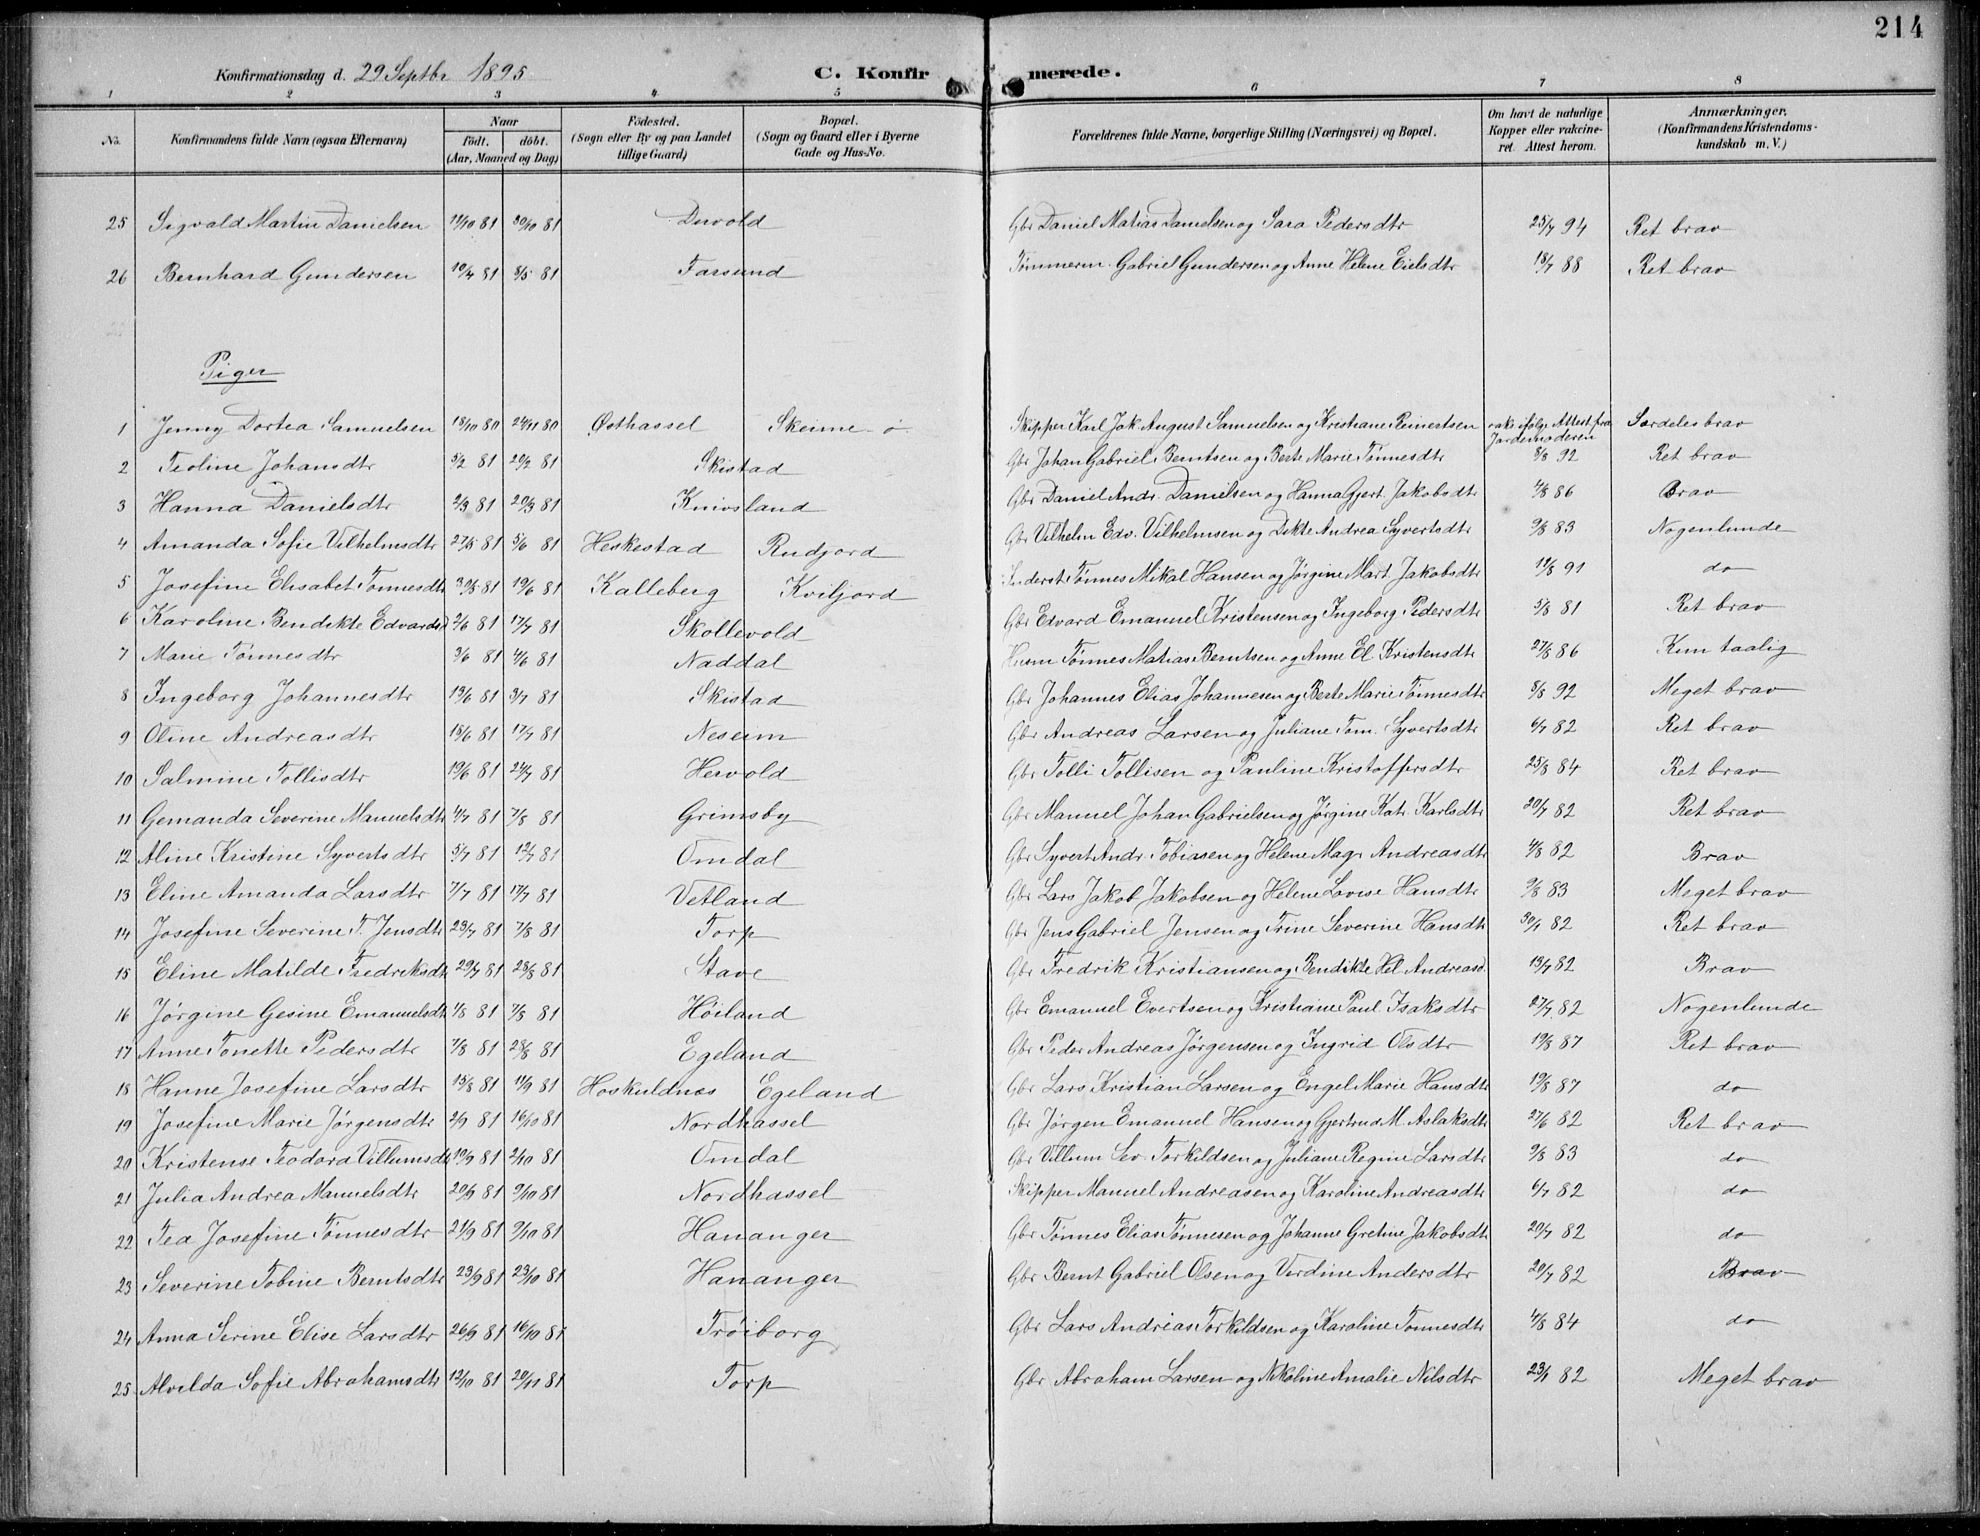 214
Konfirmationsdag d. 29 Septbr 1895 C. Konfirmerede.
1 2 3 4 5 6 7 8
No. Konfirmandens fulde Navn (ogsaa Efternavn) Naar födt. döbt. (Aar, Maaned og Dag) Födested. (Sogn eller By og paa Landet tillige Gaard) Bopæl. (Sogn og Gaard eller i Byerne Gade og Hus-No. Forældrenes fulde Navne, borgerlige Stilling (Næringsvei) og Bopæl. Om havt de naturlige Kopper eller vakcineret. Attest herom. Anmærkninger. (Konfirmandens Kristendomskundskab m. V.)
25 Sigvald Martin Danielsen 11/10 81 30/10 81 Duvold Gbr Daniel Matias Danielsen og Sara Pedersdtr 25/7 94 Ret brav
26 Bernhard Gundersen 10/4 81 8/5 81 Farsund Tømmerm. Gabriel Gundersen og Anne Helene Eielsdtr 18/7 88 Ret brav
Piger
1 Jenny Dortea Samuelsen 18/10 80 24/11 80 Østhassel Skeime ø. Skipper Karl Jak. August Samuelsen og Kristiane Reinertsen vaks. ifølge Attest fra Jordemoderen Særdeles brav
2 Teoline Johansdtr 5/2 81 20/2 81 Skistad Gbr Johan Gabriel Berntsen og Berte Marie Tønnesdtr 8/8 92 Ret brav
3 Hanna Danielsdtr 2/3 81 20/3 81 Knivsland Gbr Daniel Andr. Danielsen og Hanna Gjert. Jakobsdtr 4/8 86 Brav
4 Amanda Sofie Vilhelmsdtr 27/5 81 5/6 81 Heskestad Rudjord Gbr Vilhelm Edv. Vilhelmsen og Dikte Andrea Syvertsdtr 9/8 83 Nogenlunde
5 Josefine Elisabet Tønnesdtr 30/5 81 19/6 81 Kalleberg Kviljord Inderst Tønnes Mikal Hansen og Jørgine Mart. Jakobsdtr 11/8 91 do
6 Karoline Bendikte Edvardsd 2/6 81 17/7 81 Skollevold Gbr Edvard Emanuel Kristensen og Ingeborg Pedersdtr 5/8 81 Ret brav
7 Marie Tønnesdtr 3/6 81 4/6 81 Naddal Husm Tønnes Matias Berntsen og Anne El. Kristensdtr 27/8 86 Kun taalig
8 Ingeborg Johannesdtr 13/6 81 3/7 81 Skistad Gbr Johannes Elias Johannesen og Berte Marie Tønnesdtr 8/8 92 Meget brav
9 Oline Andreasdtr 18/6 81 17/7 81 Neseim Gbr Andreas Larsen og Juliane Tom. Syvertsdtr 6/7 82 Ret brav
10 Salmine Tollisdtr 19/6 81 24/7 81 Hervold Gbr Tolli Tollisen og Pauline Kristoffersdtr 25/8 84 Ret brav
11 Gemanda Severine Manuelsdtr 4/7 81 7/8 81 Grimsby Gbr Manuel Johan Gabrielsen og Jørgine Katr. Karlsdtr 20/7 82 Ret brav
12 Aline Kristine Syvertsdtr 5/7 81 12/7 81 Omdal Gbr Syvert Andr. Tobiasen og Helene Magr Andreasdtr 4/8 82 Brav
13 Eline Amanda Larsdtr 7/7 81 17/7 81 Vetland Gbr Lars Jakob Jakobsen og Helene Lovise Hansdtr 9/8 83 Meget brav
14 Josefine Severine T. Jensdtr 23/7 81 7/8 81 Torp Gbr Jens Gabriel Jensen og Trine Severine Hansdtr 30/7 82 Ret brav
15 Eline Matilde Fredriksdtr 29/7 81 28/8 81 Stave Gbr Fredrik Kristiansen og Bendikte Hel. Andreasd. 13/7 82 Brav
16 Jørgine Gesine Emanuelsdtr 1/8 81 7/8 81 Høiland Gbr Emanuel Evertsen og Kristiane Paul. Isaksdtr 27/7 82 Nogenlunde
17 Anne Tonette Pedersdtr 7/8 81 28/8 81 Egeland Gbr Peder Andreas Jørgensen og Ingrid Olsdtr 19/8 87 Ret brav
18 Hanne Josefine Larsdtr 15/8 81 11/9 81 Hoskuldnes Egeland Gbr Lars Kristian Larsen og Engel Marie Hansdtr 19/8 87 do
19 Josefine Marie Jørgensdtr 2/9 81 16/10 81 Nordhassel Gbr Jørgen Emanuel Hansen og Gjertrud M. Aslaksdtr 27/6 82 Ret brav
20 Kristense Teodora Villumsdtr 19/9 81 2/10 81 Omdal Gbr Villum Sev. Torkildsen og Juliane Regine Larsdtr 9/8 83 do
21 Julia Andrea Manuelsdtr 20/9 81 9/10 81 Nordhassel Skipper Manuel Andreasen og Karoline Andreasdtr 6/7 82 do
22 Tea Josefine Tønnesdtr 21/9 81 9/10 81 Hananger Gbr Tønnes Elias Tønnesen og Johanne Gretine Jakobsdtr 20/7 82 do
23 Severine Tobine Berntsdtr 23/9 81 23/10 81 Hananger Gbr Bernt Gabriel Olsen og Verdine Andersdtr 20/7 82 Brav
24 Anna Serine Elise Larsdtr 26/9 81 16/10 81 Trøiborg Gbr Lars Andreas Torkildsen og Karoline Tønnesdtr 4/8 84 do
25 Alvilda Sofie Abrahamsdtr 12/10 81 20/11 81 Torp Gbr Abraham Larsen og Nikoline Amalie Nilsdtr 23/7 82 Meget brav